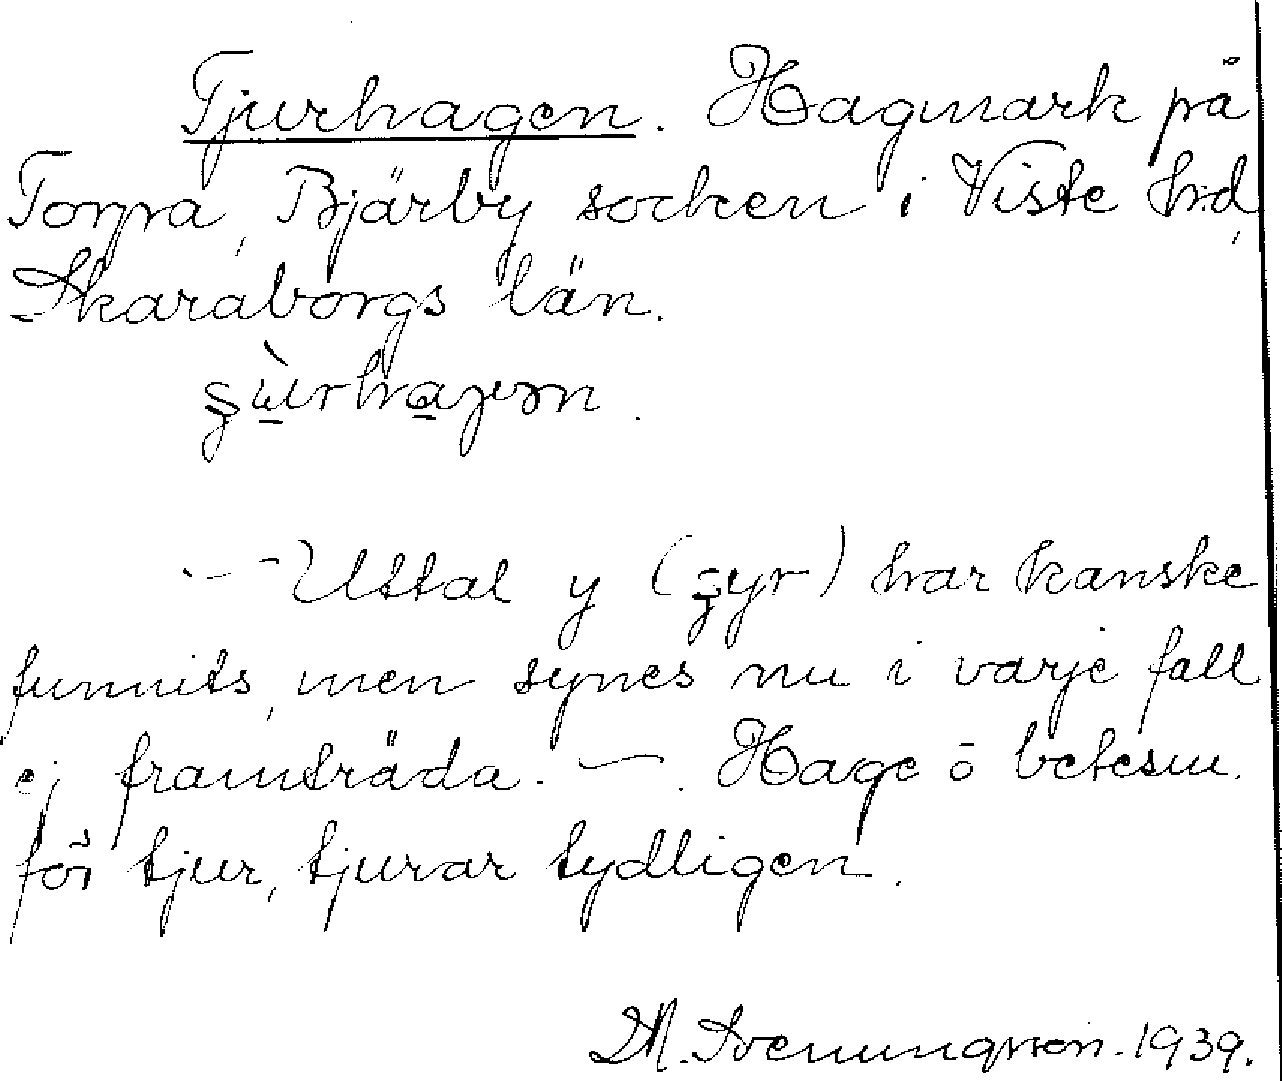 Tjurhagen. Hagmark på
Torpa, Bjärby socken i Viste hd,
Skaraborgs län.
– Uttal y (ʂyr) har kanske
funnits, men synes nu i varje fall
ej framträda. – . Hage o betesm.
för tjur, tjurar tydligen.
M. Svenungson. 1939.